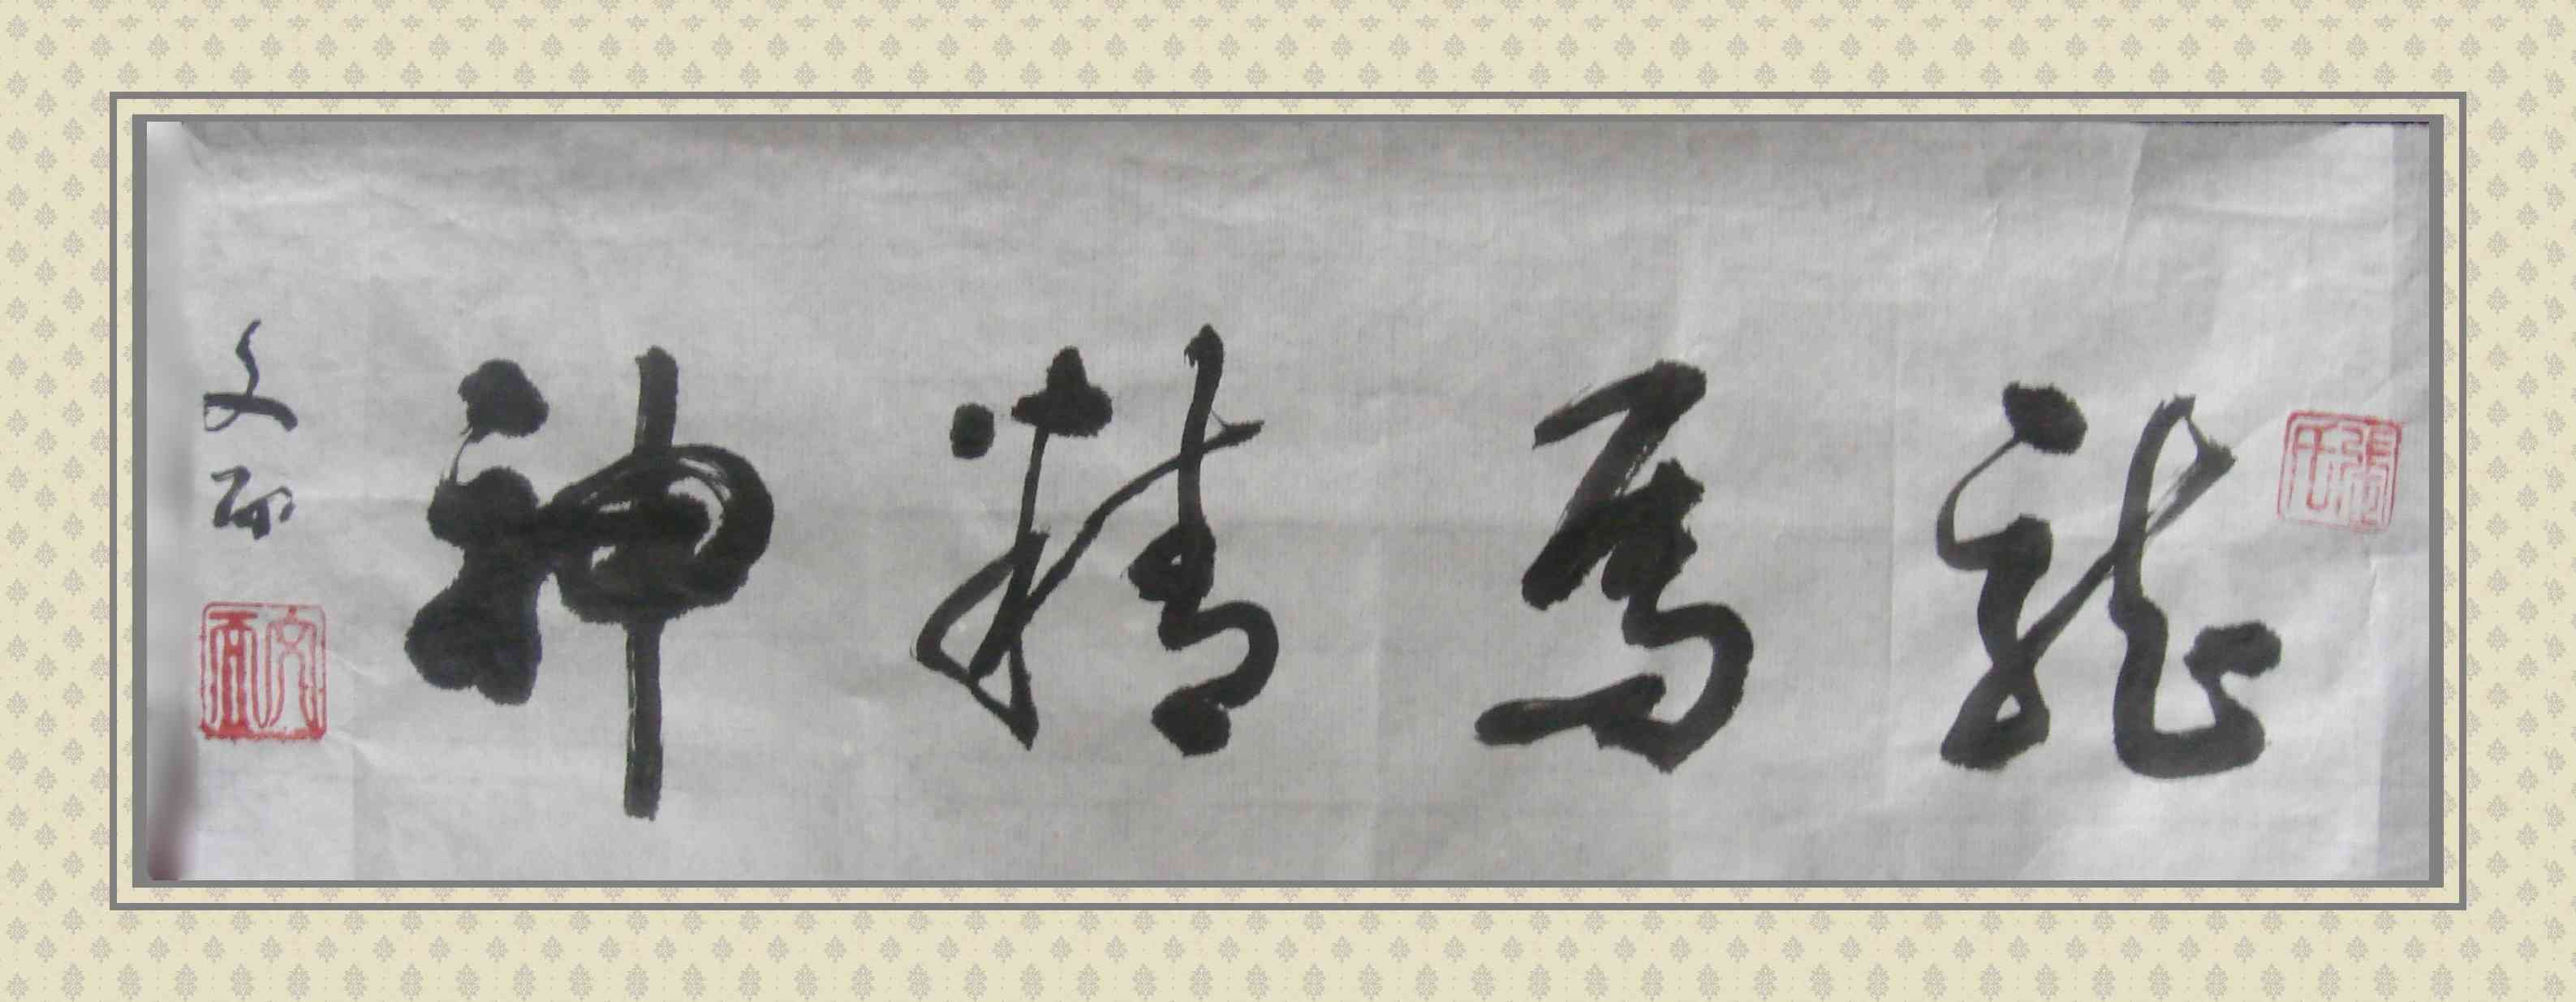 龍馬精神
文